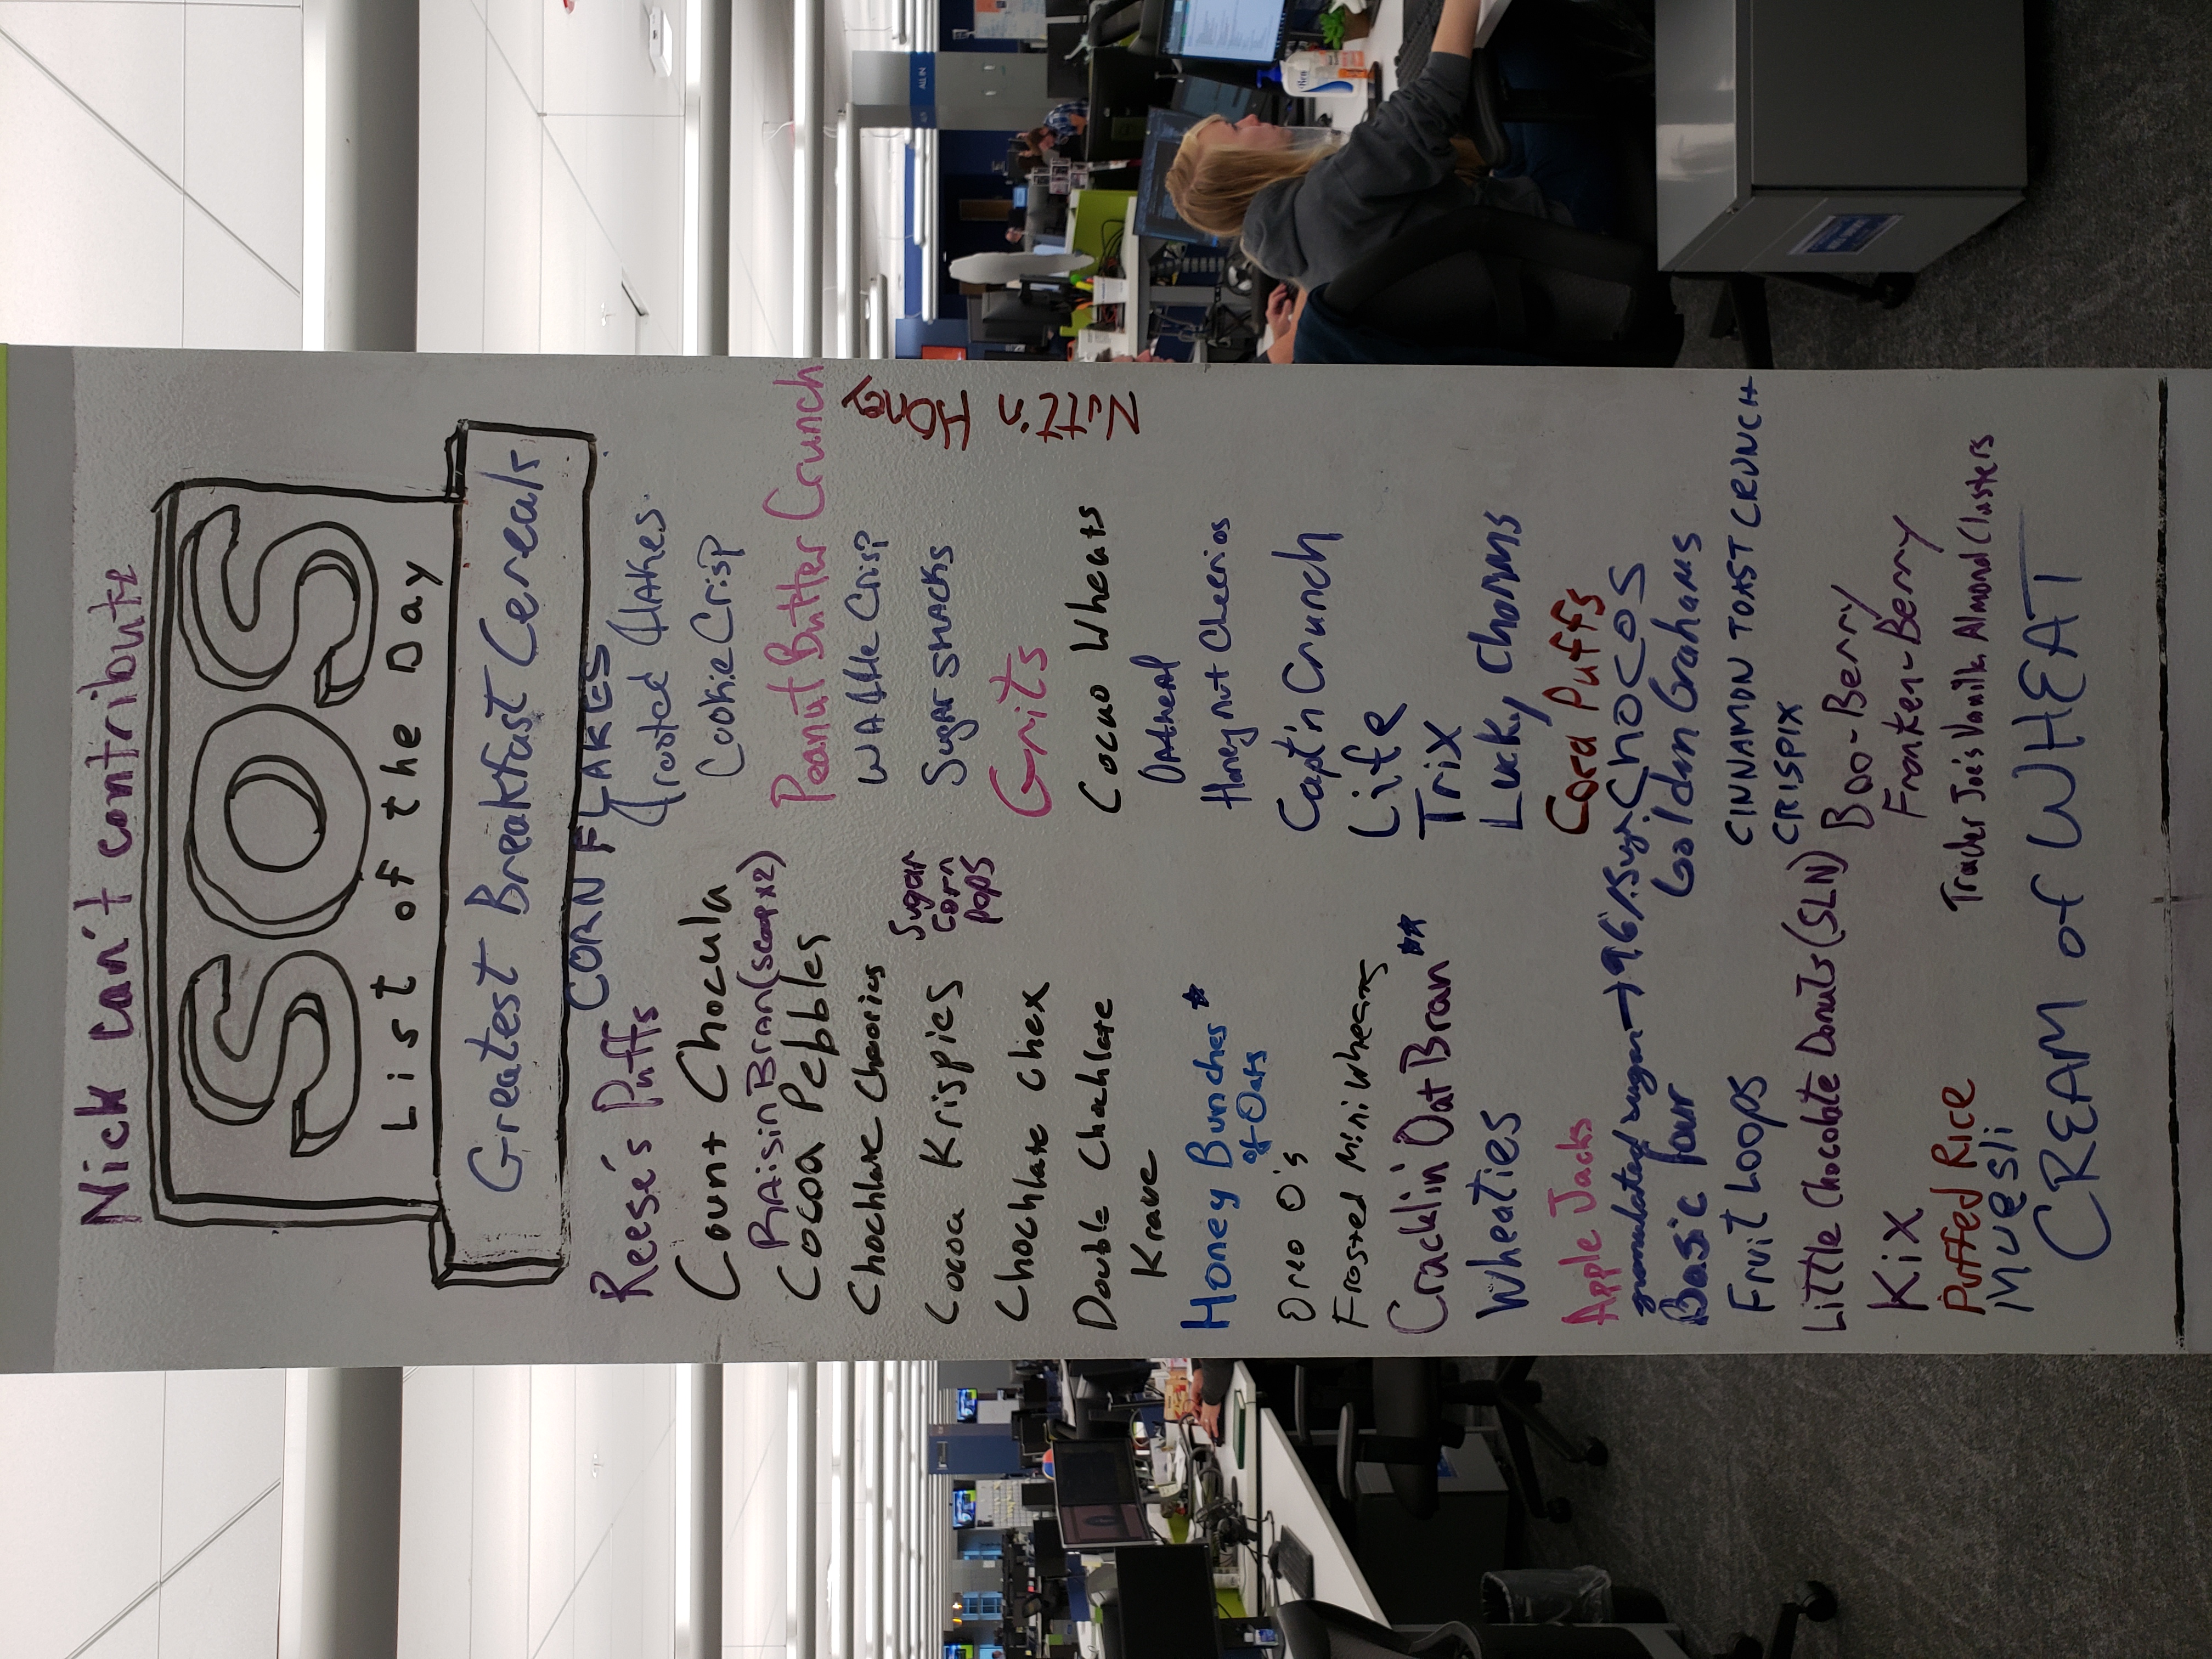 Nick can't contribute
SOS
List of the Day
Greatest Breakfast Cereals
CORN FLAKES
Reese's Puffs
Count Chocula
RAisin Bran (scoop x2)
Cocoa Pebbles
Chochlate Cheerios
Cocoa Krispies
Sugar
Corn
POPS
Chochlate Chex
Double Chochlate
Krave
Honey Bunches *
of Oats
Oreo O's
Frosted Mini Wheats
Cracklin' Oat Bran **
Wheaties
Apple Jacks
granulated sugar → 96% Sugr.
Basic four
Fruit Loops
Little Chocolate Donuts (SLN)
Kix
Puffed Rice
Muesli
Frosted flakes
Cookie Crisp
Peanut Butter Crunch
WAffle Crisp
Sugar SMACKS
Grits
Cocao Wheats
OAtmeAl
Honey nut Cheerios
Capt'n Crunch
Life
Trix
Lucky Charms
Corn Puffs
CHOCOS
Golden Grahams
CINNAMON TOAST CRUNCH
CRISPIX
Boo-Berry
Franken-Berry
Trader Joe's Vanilla Almond Clusters
CREAM of WHEAT
Nutt'n Honey
ALL IN